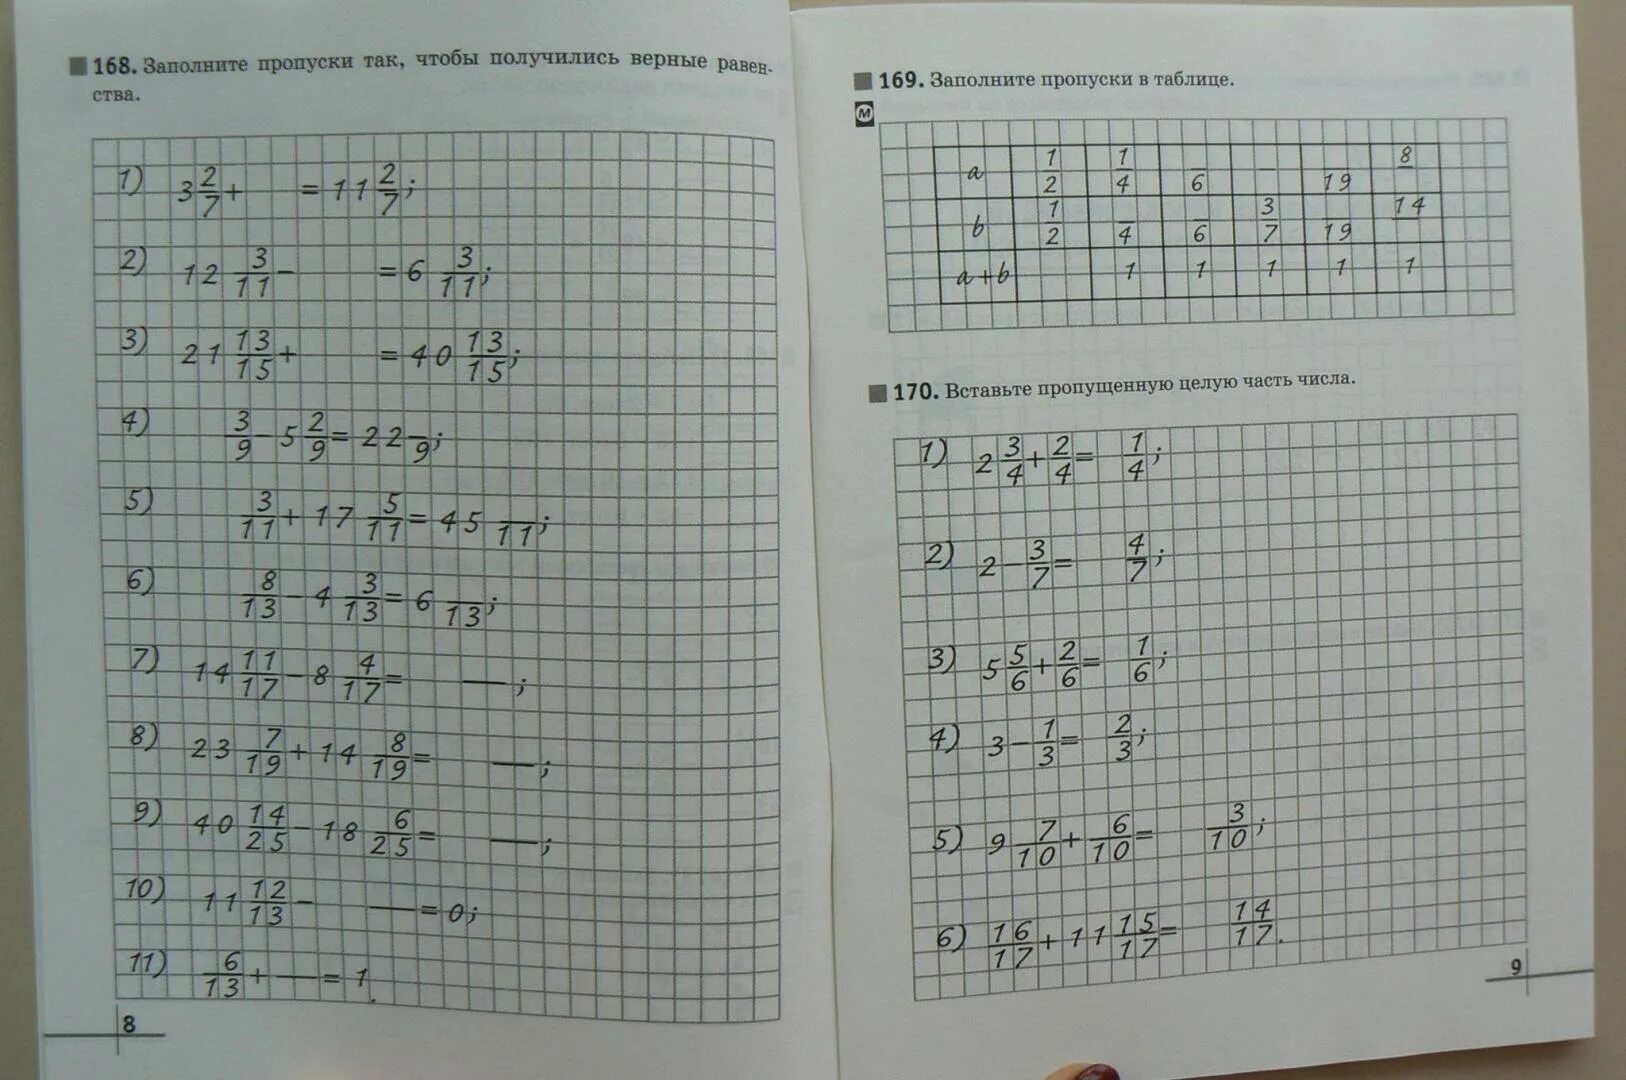 168. Заполните пропуски так, чтобы получились верные равен-
ства.
1) 3 2/7 + = 11 2/7;
2) 12 3/11 − = 6 3/11;
3) 21 13/15 + = 40 13/15;
4) 3/9 − 5 2/9 = 22 /9;
5) 3/11 + 17 5/11 = 45 /11;
6) 8/13 − 4 3/13 = 6 /13;
7) 14 11/17 − 8 4/17 = —;
8) 23 7/19 + 14 8/19 = —;
9) 40 14/25 − 18 6/25 = —;
10) 11 12/13 − — = 0;
11) 6/13 + — = 1.
8
169. Заполните пропуски в таблице.
М
a 1/2 1/4 /6 — /19 8/
b 1/2 /4 /6 3/7 /19 14/
a+b 1 1 1 1 1
170. Вставьте пропущенную целую часть числа.
1) 2 3/4 + 2/4 = 1/4;
2) 2 − 3/7 = 4/7;
3) 5 5/6 + 2/6 = 1/6;
4) 3 − 1/3 = 2/3;
5) 9 7/10 + 6/10 = 3/10;
6) 16/17 + 11 15/17 = 14/17.
9